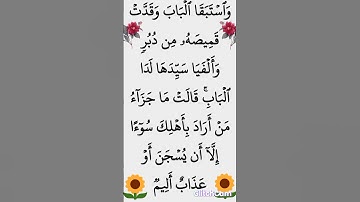 وَٱسۡتَبَقَا ٱلۡبَابَ وَقَدَّتۡ
قَمِيصَهُۥ مِن دُبُرٖ
وَأَلۡفَيَا سَيِّدَهَا لَدَا
ٱلۡبَابِۚ قَالَتۡ مَا جَزَآءُ
مَنۡ أَرَادَ بِأَهۡلِكَ سُوٓءًا
إِلَّآ أَن يُسۡجَنَ أَوۡ
عَذَابٌ أَلِيمٞ